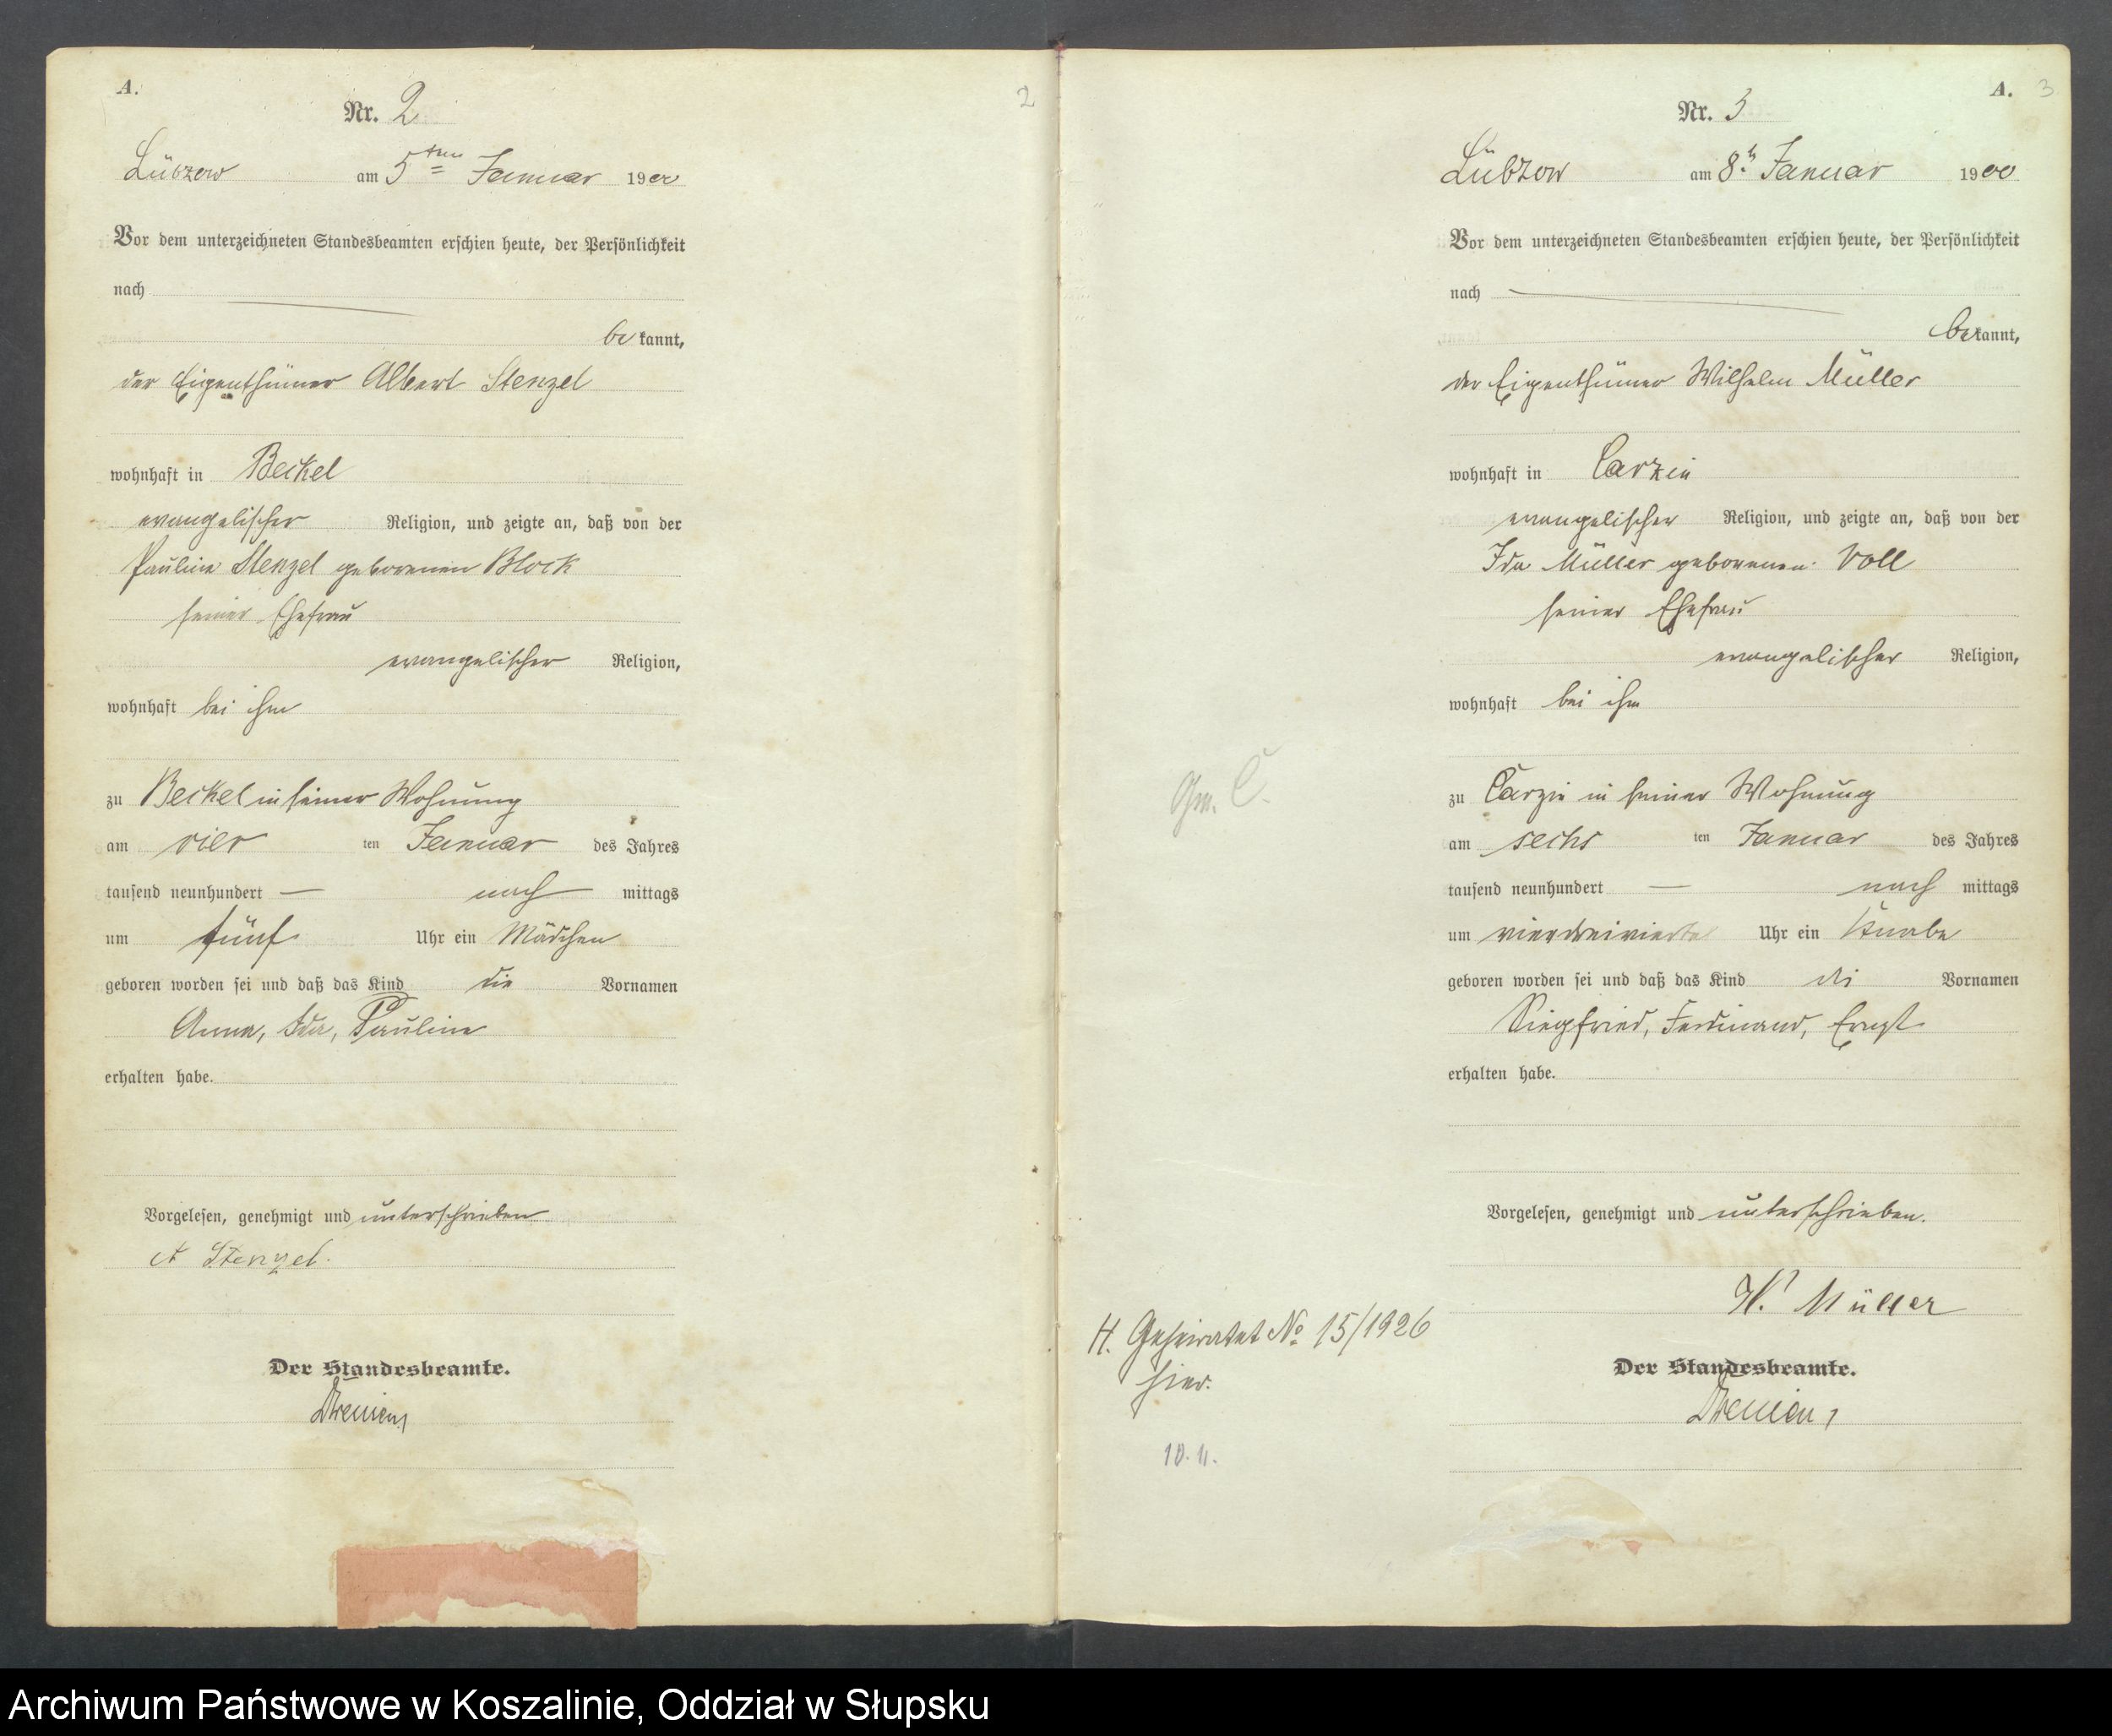 A.
Nr. 2
2
Lübzow am 5ten Januar 1900
Vor dem unterzeichneten Standesbeamten erschien heute, der Persönlichkeit
nach
bekannt,
der Eigenthümer Albert Stenzel
wohnhaft in Beckel
evangelischer Religion, und zeigte an, daß von der
Pauline Stenzel geborenen Block
seiner Ehefrau
evangelischer Religion,
wohnhaft bei ihm
zu Beckel in seiner Wohnung
am vier ten Januar des Jahres
tausend neunhundert — nach mittags
um fünf Uhr ein Mädchen
geboren worden sei und daß das Kind die Vornamen
Anna, Ida, Pauline
erhalten habe.
Vorgelesen, genehmigt und unterschrieben
A Stenzel.
Der Standesbeamte.
A. 3
Nr. 3
Lübzow am 8t Januar 1900
Vor dem unterzeichneten Standesbeamten erschien heute, der Persönlichkeit
nach
bekannt,
der Eigenthümer Wilhelm Müller
wohnhaft in Carzin
evangelischer Religion, und zeigte an, daß von der
Ida Müller geborenen Voll
seiner Ehefrau
evangelischer Religion,
wohnhaft bei ihm
zu Carzin in seiner Wohnung
am sechs ten Januar des Jahres
tausend neunhundert — nach mittags
um vierdreiviertel Uhr ein Knabe
geboren worden sei und daß das Kind die Vornamen
Siegfried, Ferdinand, Ernst
erhalten habe.
Vorgelesen, genehmigt und unterschrieben.
W. Müller
Der Standesbeamte.
H. Geheiratet No 15/1926
hier.
10.11.
Archiwum Państwowe w Koszalinie, Oddział w Słupsku